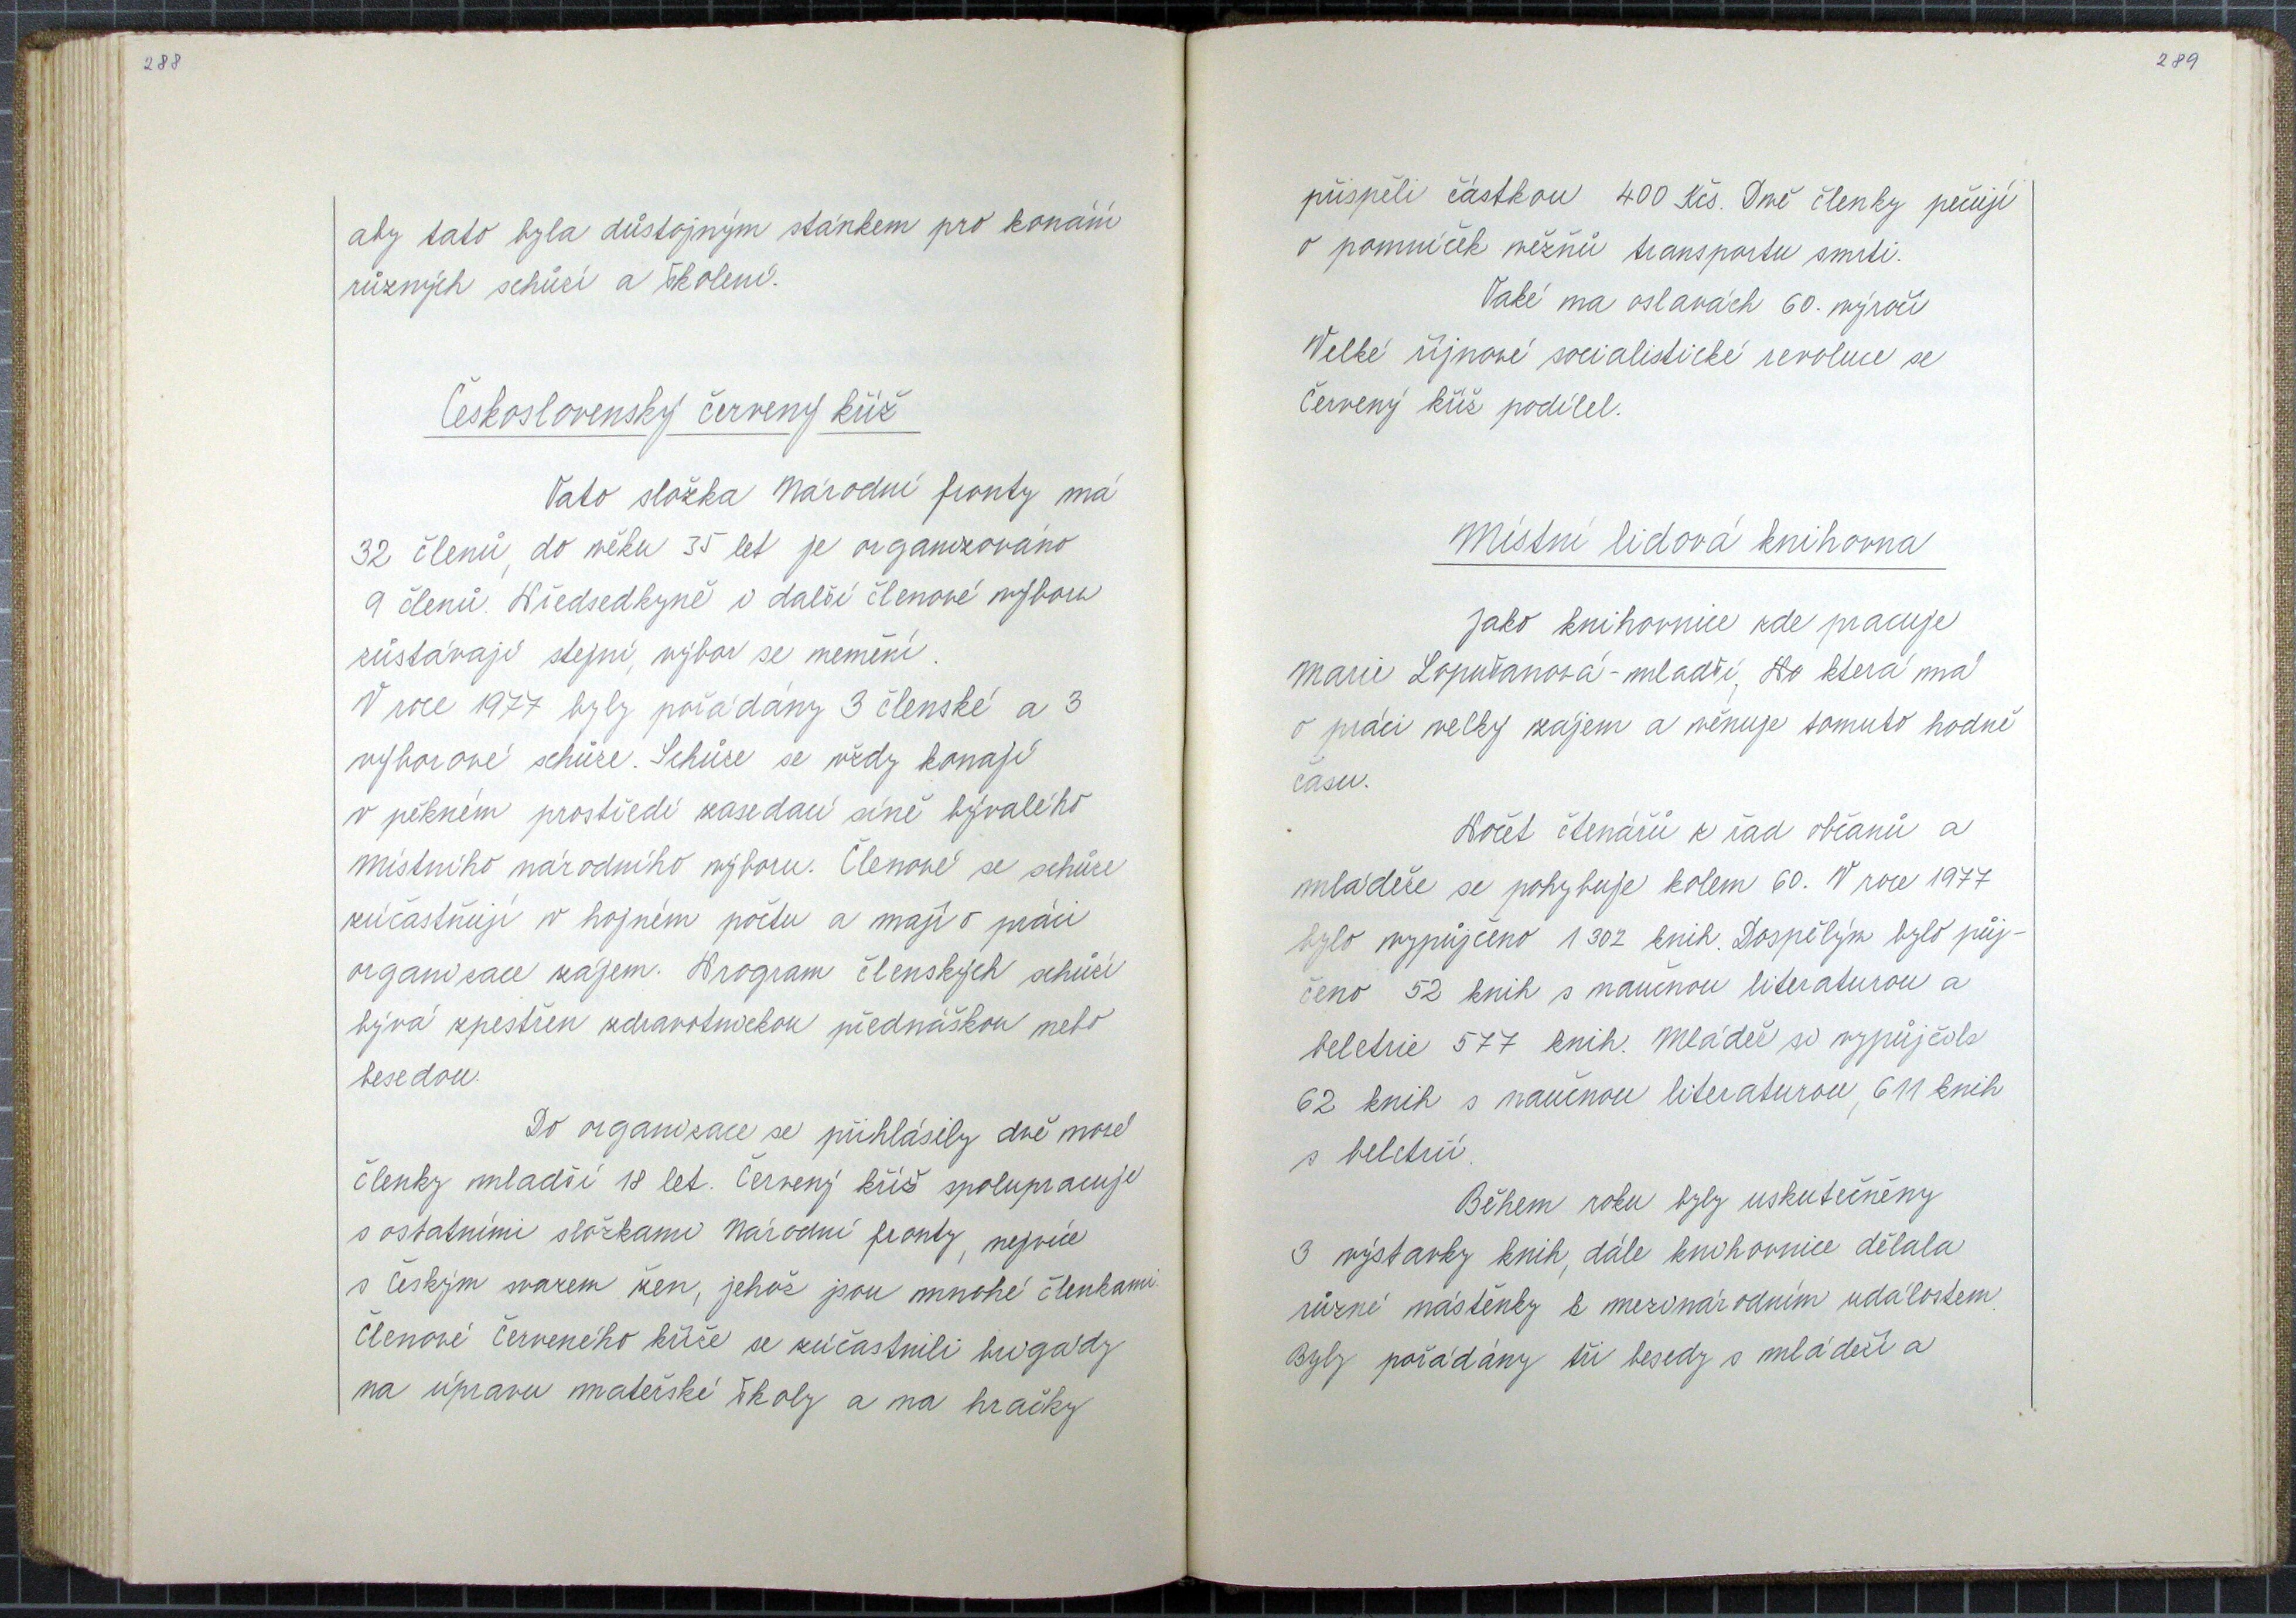 288
aby tato byla důstojným stánkem pro konání
různých schůzí a školení.
Československý červený kříž
Tato složka Národní fronty má
32 členů, do věku 35 let je organizováno
9 členů. Předsedkyně i další členové výboru
zůstávají stejní, výbor se nemění.
V roce 1977 byly pořádány 3 členské a 3
výborové schůze. Schůze se vždy konají
v pěkném prostředí zasedací síně bývalého
Místního národního výboru. Členové se schůze
zúčastňují v hojném počtu a mají o práci
organizace zájem. Program členských schůzí
bývá zpestřen zdravotnickou přednáškou nebo
besedou.
Do organizace se přihlásily dvě nové
členky mladší 18 let. Červený kříž spolupracuje
s ostatními složkami Národní fronty, nejvíce
s Českým svazem žen, jehož jsou mnohé členkami.
Členové Červeného kříže se zúčastnili brigády
na úpravu mateřské školy a na hračky
289
přispěli částkou 400 Kčs. Dvě členky pečují
o pomníček vězňů transportu smrti.
Také na oslavách 60. výročí
Velké říjnové socialistické revoluce se
Červený kříž podílel.
Místní lidová knihovna
Jako knihovnice zde pracuje
Marie Lopušanová-mladší, která má
o práci velký zájem a věnuje tomuto hodně
času.
Počet čtenářů z řad občanů a
mládeže se pohybuje kolem 60. V roce 1977
bylo vypůjčeno 1 302 knih. Dospělým bylo půj-
čeno 52 knih s naučnou literaturou a
beletrie 577 knih. Mládež si vypůjčila
62 knih s naučnou literaturou, 611 knih
s beletrií.
Během roku byly uskutečněny
3 výstavky knih, dále knihovnice dělala
různé nástěnky k mezinárodním událostem.
Byly pořádány tři besedy s mládeží a